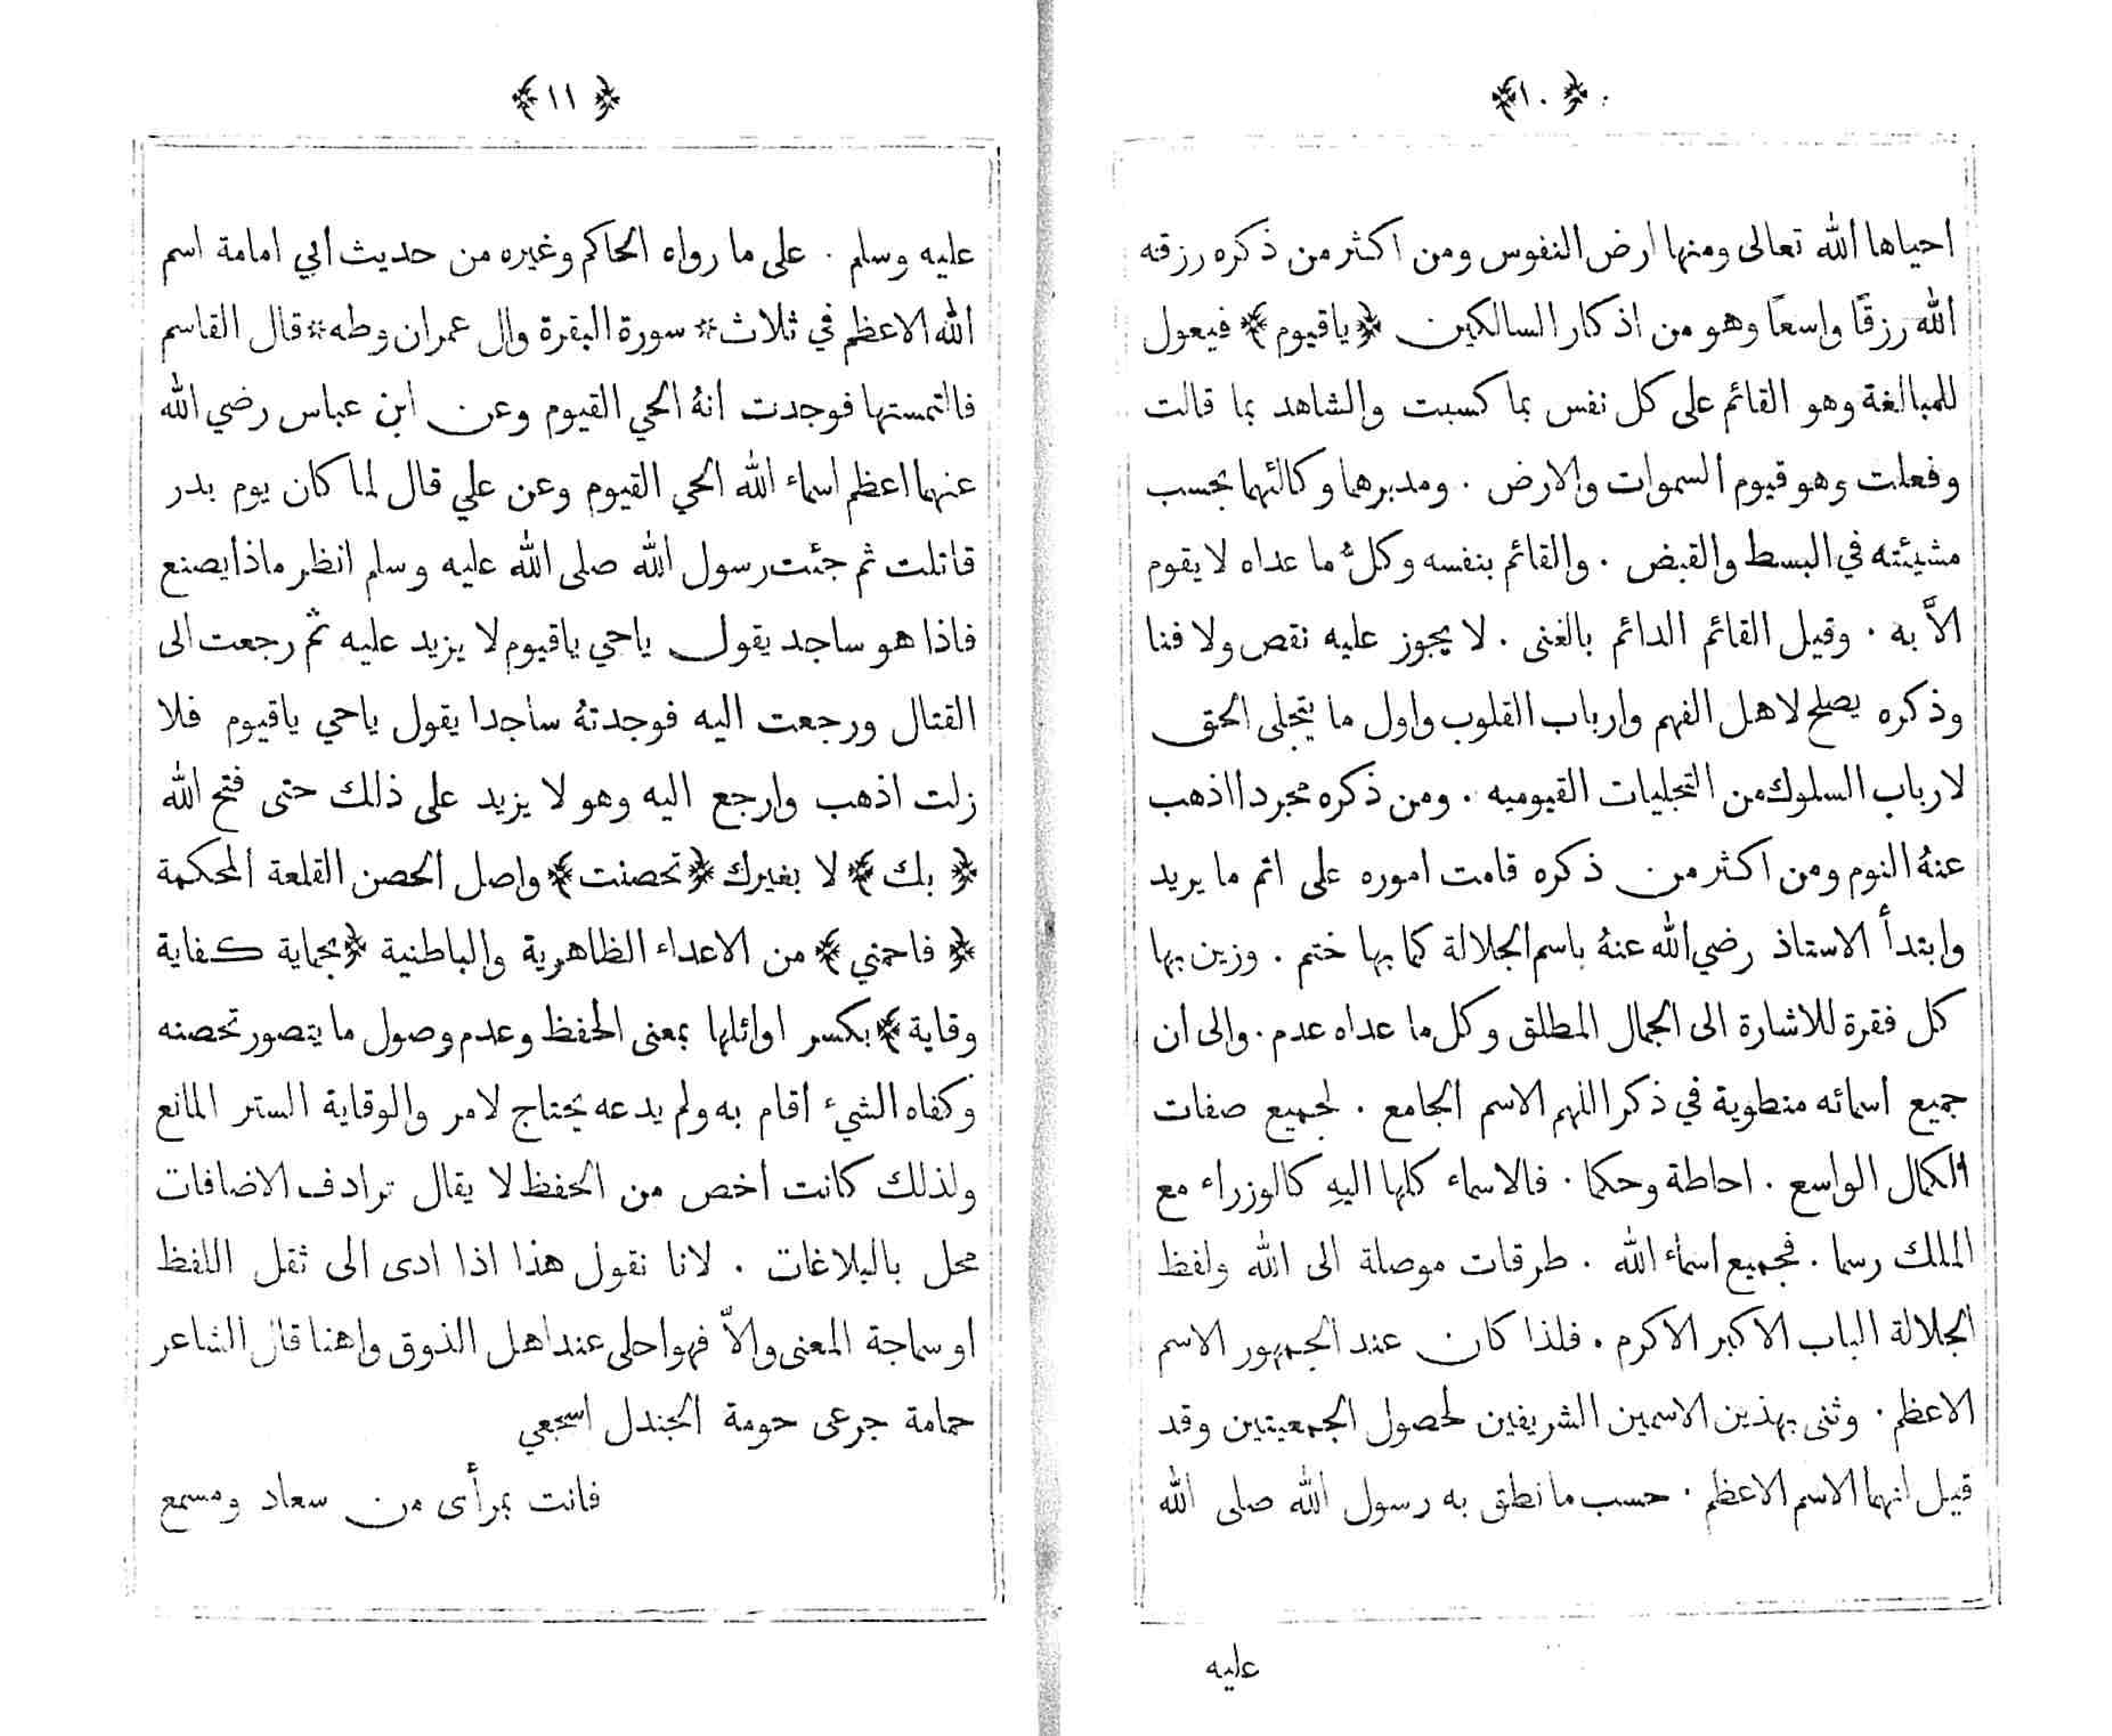 ﴿ ١٠ ﴾
احياها الله تعالى ومنها ارض النفوس ومن اكثر من ذكره رزقه
الله رزقًا واسعًا وهو من اذكار السالكين ﴿ ياقيوم ﴾ فيعول
للمبالغة وهو القائم على كل نفس بما كسبت والشاهد بما قالت
وفعلت وهو قيوم السموات والارض . ومدبرهما وكالئهما بحسب
مشيئته في البسط والقبض . والقائم بنفسه وكلُّ ما عداه لا يقوم
الاَّ به . وقيل القائم الدائم بالغنى . لا يجوز عليه نقص ولا فنا
وذكره يصلح لاهل الفهم وارباب القلوب واول ما يتجلى الحق
لارباب السلوك من التجليات القيوميه . ومن ذكره مجردا اذهب
عنهُ النوم ومن اكثر من ذكره قامت اموره على اتم ما يريد
وابتدأ الاستاذ رضي الله عنهُ باسم الجلالة كما بها ختم . وزين بها
كل فقرة للاشارة الى الجمال المطلق وكل ما عداه عدم . والى ان
جميع اسمائه منطوية في ذكر اللهم الاسم الجامع . لجميع صفات
الكمال الواسع . احاطة وحكما . فالاسماء كلها اليهِ كالوزراء مع
الملك رسما . فجميع اسماء الله . طرقات موصلة الى الله ولفظ
الجلالة الباب الاكبر الاكرم . فلذا كان عند الجمهور الاسم
الاعظم . وثنى بهذين الاسمين الشريفين لحصول الجمعيتين وقد
قيل انهما الاسم الاعظم . حسب ما نطق به رسول الله صلى الله
عليه
﴿ ١١ ﴾
عليه وسلم . على ما رواه الحاكم وغيره من حديث ابي امامة اسم
الله الاعظم في ثلاث * سورة البقرة وال عمران وطه * قال القاسم
فالتمستها فوجدت انهُ الحي القيوم وعن ابن عباس رضي الله
عنهما اعظم اسماء الله الحي القيوم وعن علي قال لما كان يوم بدر
قاتلت ثم جئت رسول الله صلى الله عليه وسلم انظر ماذا يصنع
فاذا هو ساجد يقول ياحي ياقيوم لا يزيد عليه ثم رجعت الى
القتال ورجعت اليه فوجدتهُ ساجدا يقول ياحي ياقيوم فلا
زلت اذهب وارجع اليه وهو لا يزيد على ذلك حتى فتح الله
﴿ بك ﴾ لا بغيرك ﴿ تحصنت ﴾ واصل الحصن القلعة المحكمة
﴿ فاحمني ﴾ من الاعداء الظاهرية والباطنية ﴿ بحماية كفاية
وقاية ﴾ بكسر اوائلها بمعنى الحفظ وعدم وصول ما يتصور تحصنه
وكفاه الشيء اقام به ولم يدعه يحتاج لامر والوقاية الستر المانع
ولذلك كانت اخص من الحفظ لا يقال ترادف الاضافات
محل بالبلاغات . لانا نقول هذا اذا ادى الى ثقل اللفظ
او سماجة المعنى والاّ فهو احلى عند اهل الذوق واهنا قال الشاعر
حمامة جرعى حومة الجندل اسجعي
فانت بمرأى من سعاد ومسمع